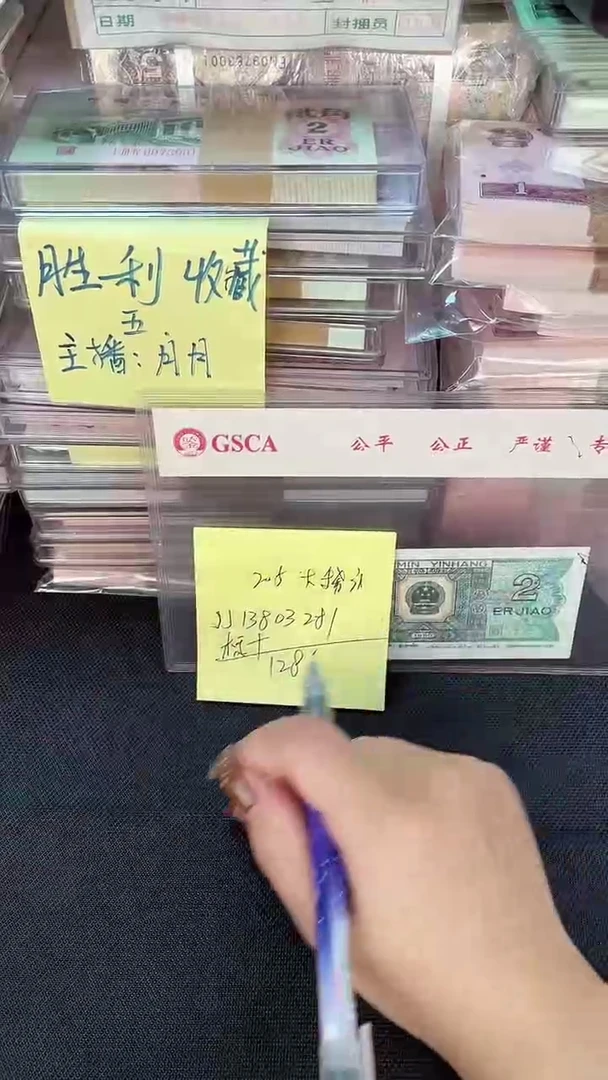 日期 封捆员
贰角
2
ER
JIAO
1
胜利 收藏
五
主播：月月
GSCA 公平 公正 严谨 专
JJ13803281
标十
128
MIN YINHANG
2
ERJIAO
1980